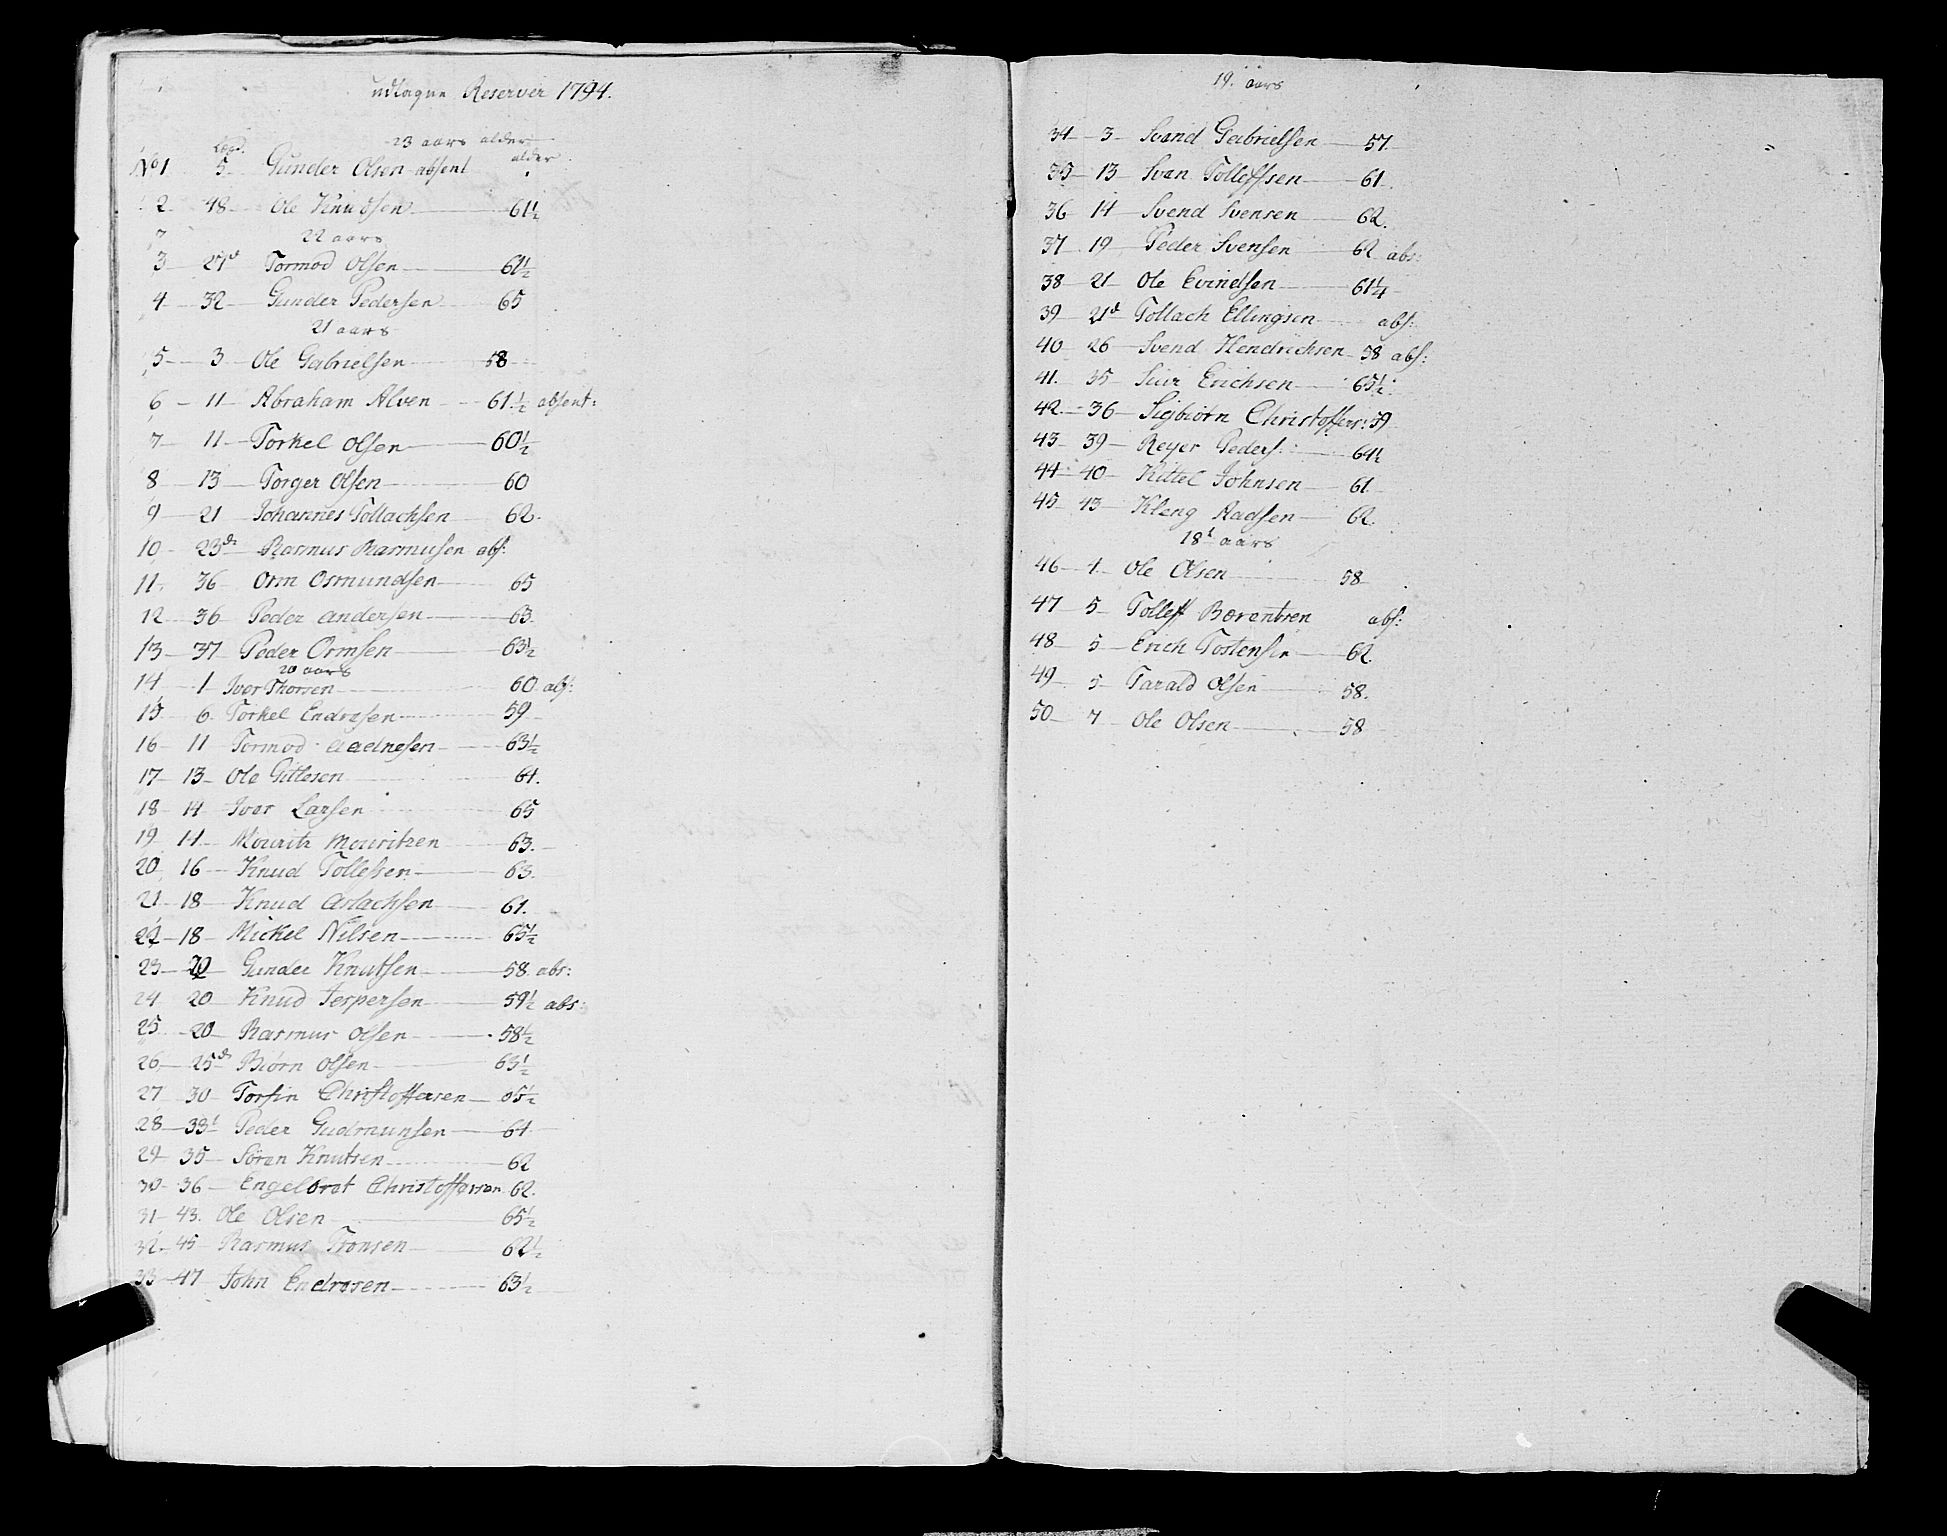 udtagne Reserver 1794.
23 aars alder
Lægd. alder
No 1 5 Gunder Olsen absent
2 48 Ole Knudsen 61½
22 aars
3 27d Tormod Olsen 61½
4 32 Gunder Pedersen 65
21 aars
5 3 Ole Gabrielsen 58
6 11 Abraham Alven 61½ absent:
7 11 Torkel Olsen 60½
8 13 Torger Olsen 60
9 21 Johannes Tollachsen 62
10 23de Rasmus Rasmusen abs:
11 36 Orm Osmundsen 65
12 36 Peder Andersen 63.
13 37 Peder Ormsen 63½
20 aars
14 1 Iver Thorsen 60 abs:
15 6 Torkel Endresen 59
16 11 Tormod Aadnesen 63½
17 13 Ole Gitlesen 61.
18 14 Iver Larsen 65
19 14 Mouritz Mouritzen 63.
20 16 Knud Tollefsen 63.
21 18 Knud Aslachsen 61.
22 18 Mickel Nilsen 65½
23 20 Gunder Knutsen 58 abs:
24 20 Knud Jespersen 59½ abs:
25 20 Rasmus Olsen 58½
26 25de Biørn Olsen 63½
27 30 Torfin Christoffersen 65½
28 33t Peder Gudmunsen 61
29 35 Søren Knutsen 62
30 36 Engelbret Christoffersen 62.
31 43. Ole Olsen 65½
32 45 Rasmus Tronsen 62½
33 47 John Endresen 63½
19. aars
34 3 Svend Gabrielsen 57.
35 13 Sven Tollefsen 61.
36 14 Svend Svensen 62.
37 19 Peder Svensen 62 abs:
38 21 Ole Evindsen 61¼
39 21d Tollach Ellingsen abs:
40 26 Svend Hendrichsen 58 abs:
41. 35 Siur Erichsen 65½
42 36 Sigbiørn Christoffers: 59
43 39 Reyer Peders: 64½
44 40 Kittel Johnsen 61
45 43 Kleng Aadsen 62.
18t aars
46 1 Ole Olsen 58
47 5 Tolleff Berentsen abs:
48 5 Erich Tostensen 62
49 5 Tarald Olsen 58.
50 7 Ole Olsen 58